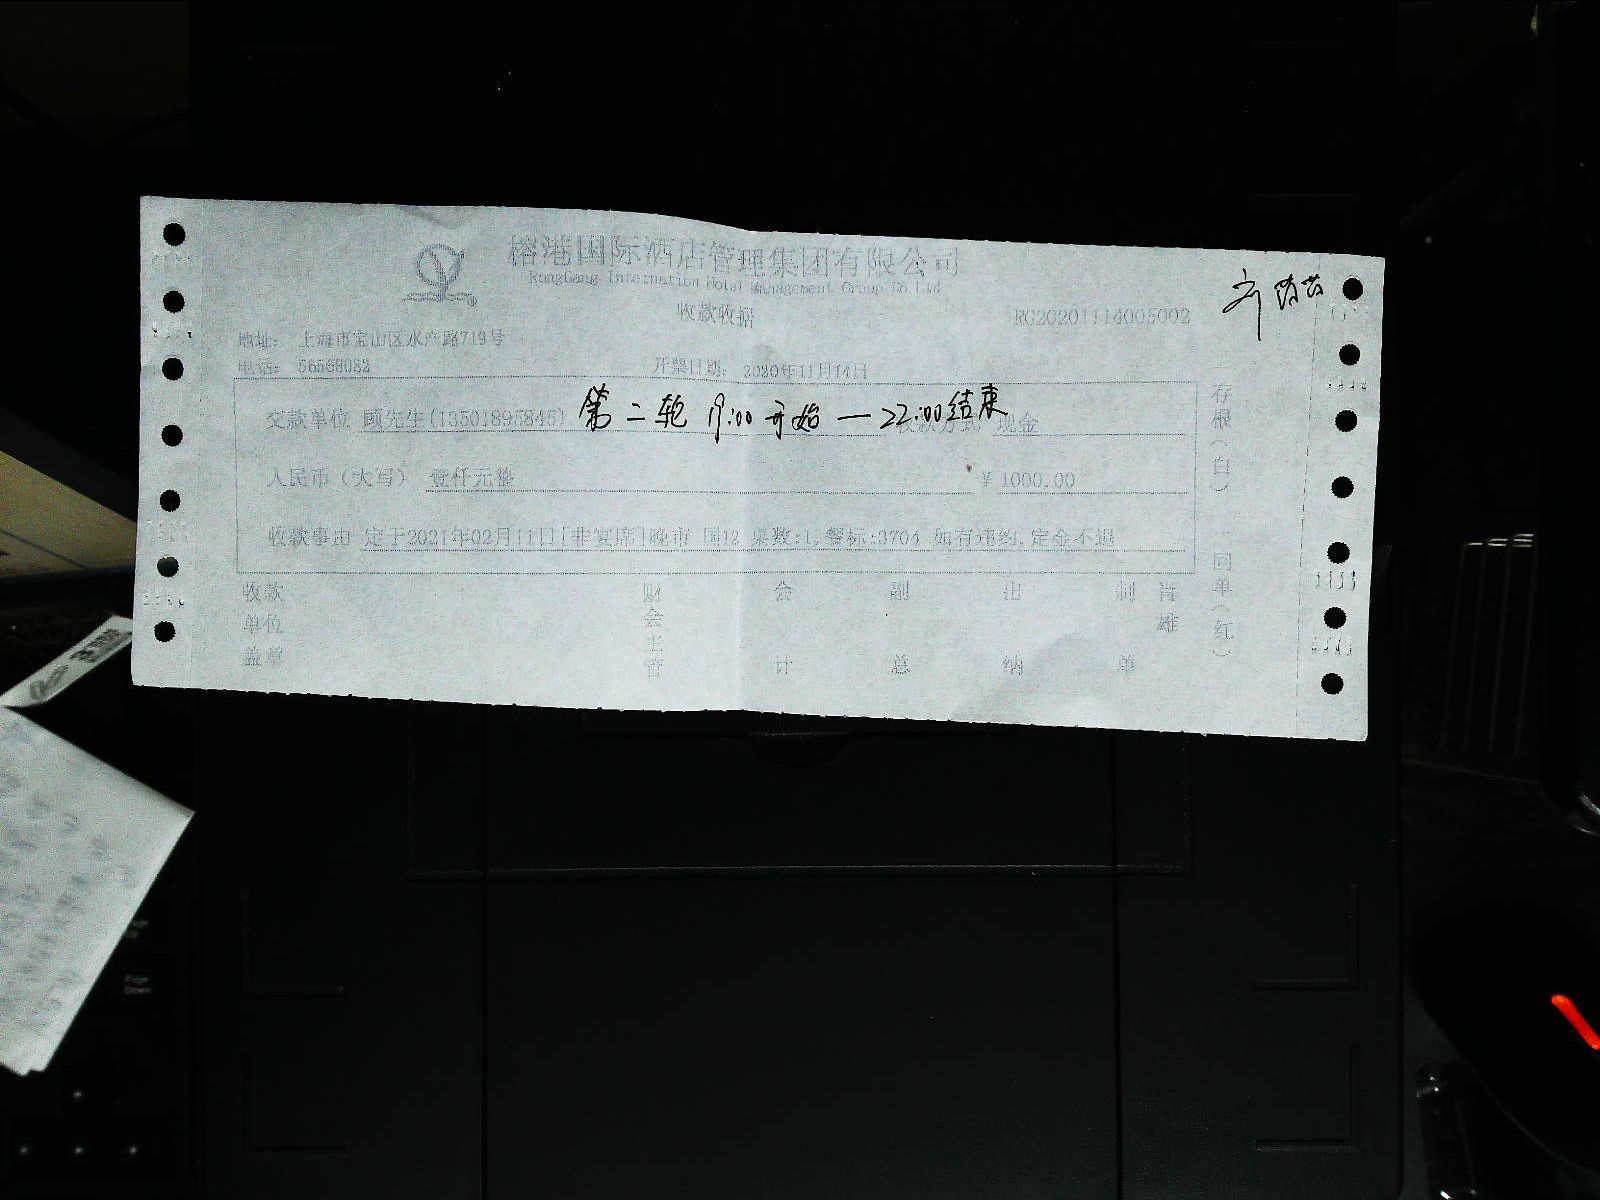 榕港国际酒店管理集团有限公司
RongGang Internation Hotel Management Group Co.Ltd
收款收据
RC20201114005002
地址: 上海市宝山区水产路719号
电话: 56568082
开票日期: 2020年11月14日
交款单位 顾先生(13501895845) 收款方式 现金
第二轮 19:00开始—22:00结束
人民币(大写) 壹仟元整 ¥ 1000.00
收款事由 定于2021年02月11日[非宴席]晚市 国12 桌数:1,餐标:3704 如有违约,定金不退
收款单位盖章
财会主管
会计
副总
出纳
制单
存根(白)
回单(红)